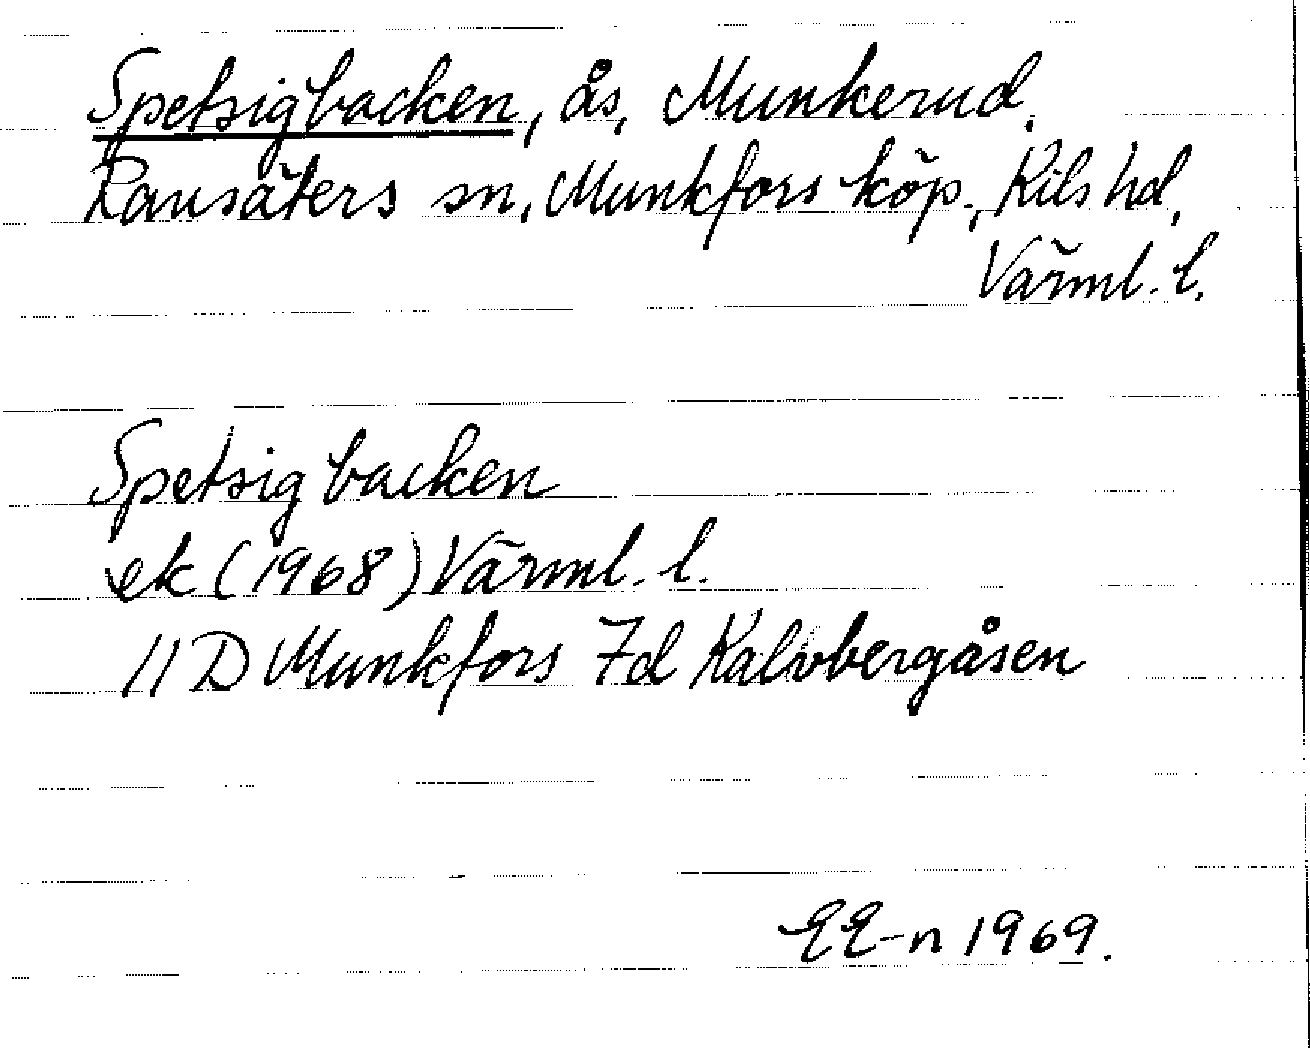 Spetsigbacken, ås, Munkerud,
Ransäters sn, Munkfors köp., Kils hd,
Värml. l.
Spetsigbacken
ek (1968) Värml. l.
11D Munkfors 7d Kalvbergåsen
EE-n 1969.